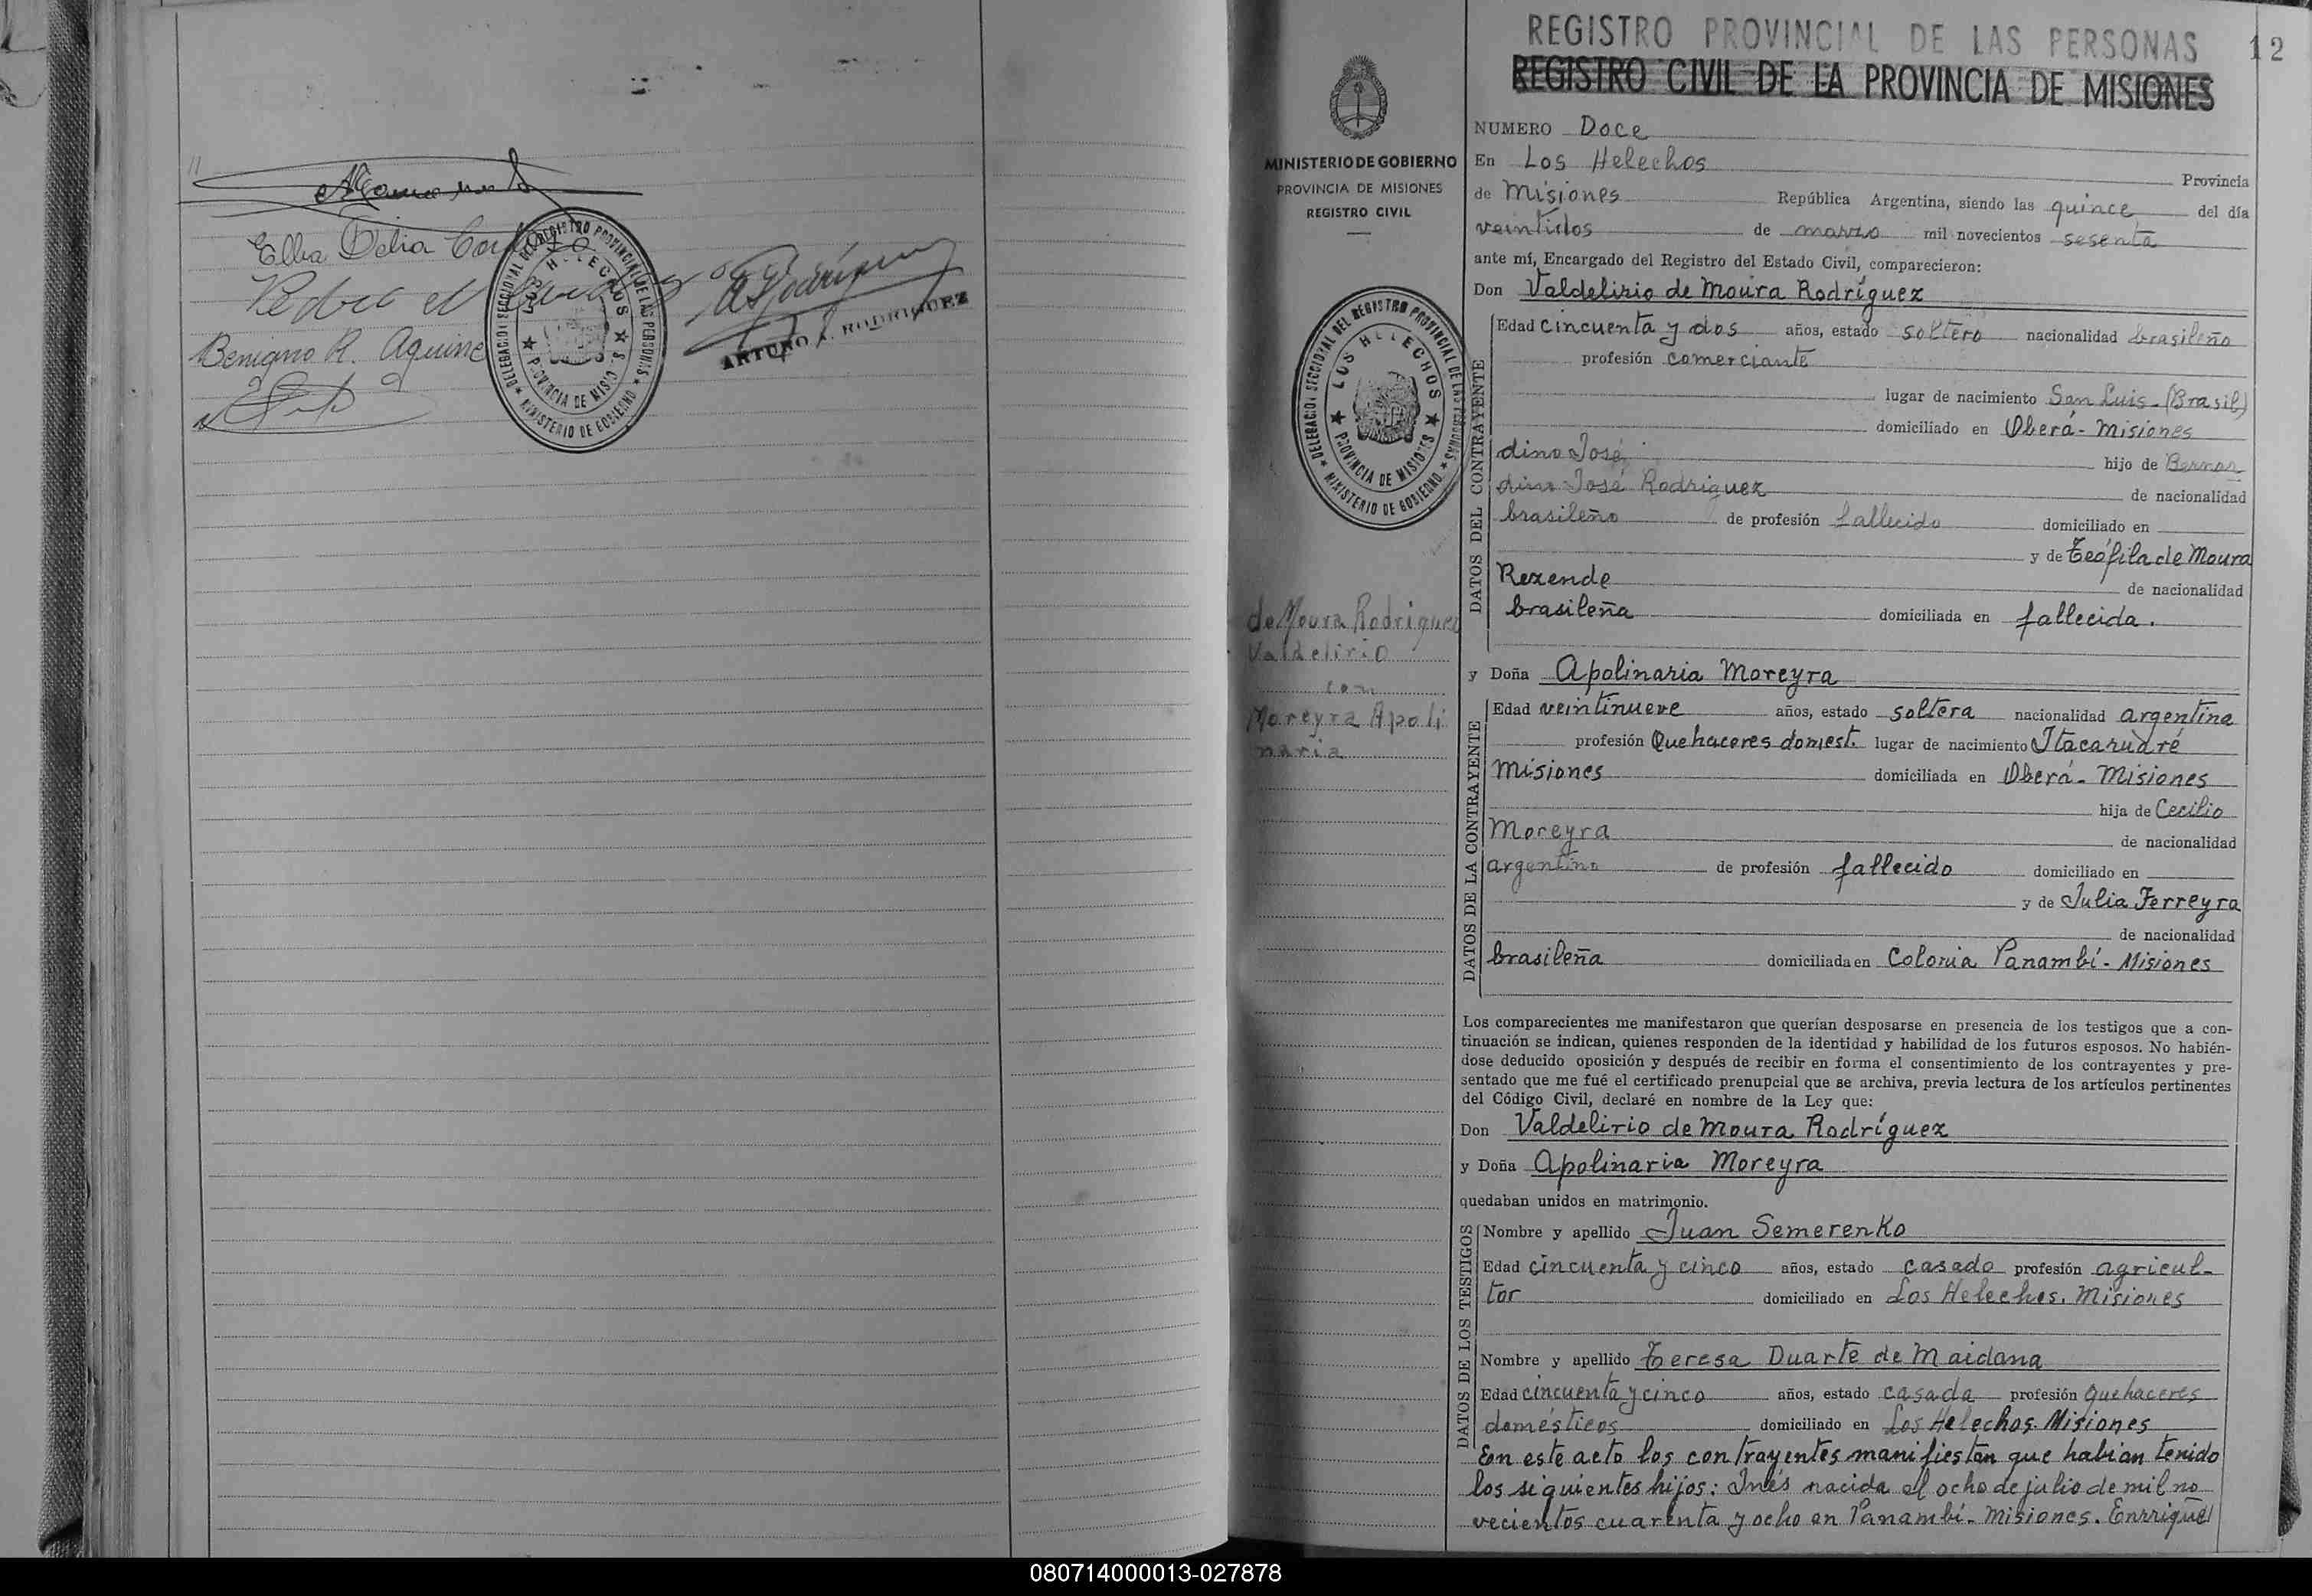 Elba Delia
Benigno R. Aguirre
ARTURO A. RODRIGUEZ
DELEGACION SECCIONAL DEL REGISTRO PROVINCIAL DE LAS PERSONAS
LOS HELECHOS
PROVINCIA DE MISIONES
MINISTERIO DE GOBIERNO
MINISTERIO DE GOBIERNO
PROVINCIA DE MISIONES
REGISTRO CIVIL
DELEGACION SECCIONAL DEL REGISTRO PROVINCIAL DE LAS PERSONAS
LOS HELECHOS
PROVINCIA DE MISIONES
MINISTERIO DE GOBIERNO
de Moura Rodriguez
Valdelirio
con
Moreyra Apoli
naria
REGISTRO PROVINCIAL DE LAS PERSONAS
12
REGISTRO CIVIL DE LA PROVINCIA DE MISIONES
NUMERO Doce
En Los Helechos Provincia
de Misiones República Argentina, siendo las quince del día
veintidos de marzo mil novecientos sesenta
ante mí, Encargado del Registro del Estado Civil, comparecieron:
Don Valdelirio de Moura Rodríguez
DATOS DEL CONTRAYENTE
Edad cincuenta y dos años, estado soltero nacionalidad brasileño
profesión comerciante
lugar de nacimiento San Luis-(Brasil)
domiciliado en Oberá-Misiones
dino José hijo de Bernar
dino José Rodriguez de nacionalidad
brasileño de profesión fallecido domiciliado en
y de Teófila de Moura
Rezende de nacionalidad
brasileña domiciliada en fallecida.
y Doña Apolinaria Moreyra
DATOS DE LA CONTRAYENTE
Edad veintinueve años, estado soltera nacionalidad argentina
profesión Quehaceres domest. lugar de nacimiento Itacaruaré
Misiones domiciliada en Oberá-Misiones
hija de Cecilio
Moreyra de nacionalidad
argentino de profesión fallecido domiciliado en
y de Julia Ferreyra
de nacionalidad
brasileña domiciliada en Colonia Panambí-Misiones
Los comparecientes me manifestaron que querían desposarse en presencia de los testigos que a con-
tinuación se indican, quienes responden de la identidad y habilidad de los futuros esposos. No habién-
dose deducido oposición y después de recibir en forma el consentimiento de los contrayentes y pre-
sentado que me fué el certificado prenupcial que se archiva, previa lectura de los artículos pertinentes
del Código Civil, declaré en nombre de la Ley que:
Don Valdelirio de Moura Rodríguez
y Doña Apolinaria Moreyra
quedaban unidos en matrimonio.
DATOS DE LOS TESTIGOS
Nombre y apellido Juan Semerenko
Edad cincuenta y cinco años, estado casado profesión agricul-
tor domiciliado en Los Helechos. Misiones
Nombre y apellido Teresa Duarte de Maidana
Edad cincuenta y cinco años, estado casada profesión quehaceres
domésticos domiciliado en Los Helechos. Misiones
En este acto los contrayentes manifiestan que habian tenido
los siguientes hijos: Inés nacida el ocho de julio de mil no
vecientos cuarenta y ocho en Panambí-Misiones. Enrrique
080714000013-027878